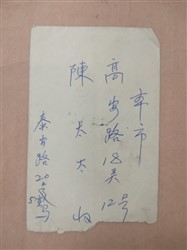 本市
高安路18弄12号
陳太太收
泰安路